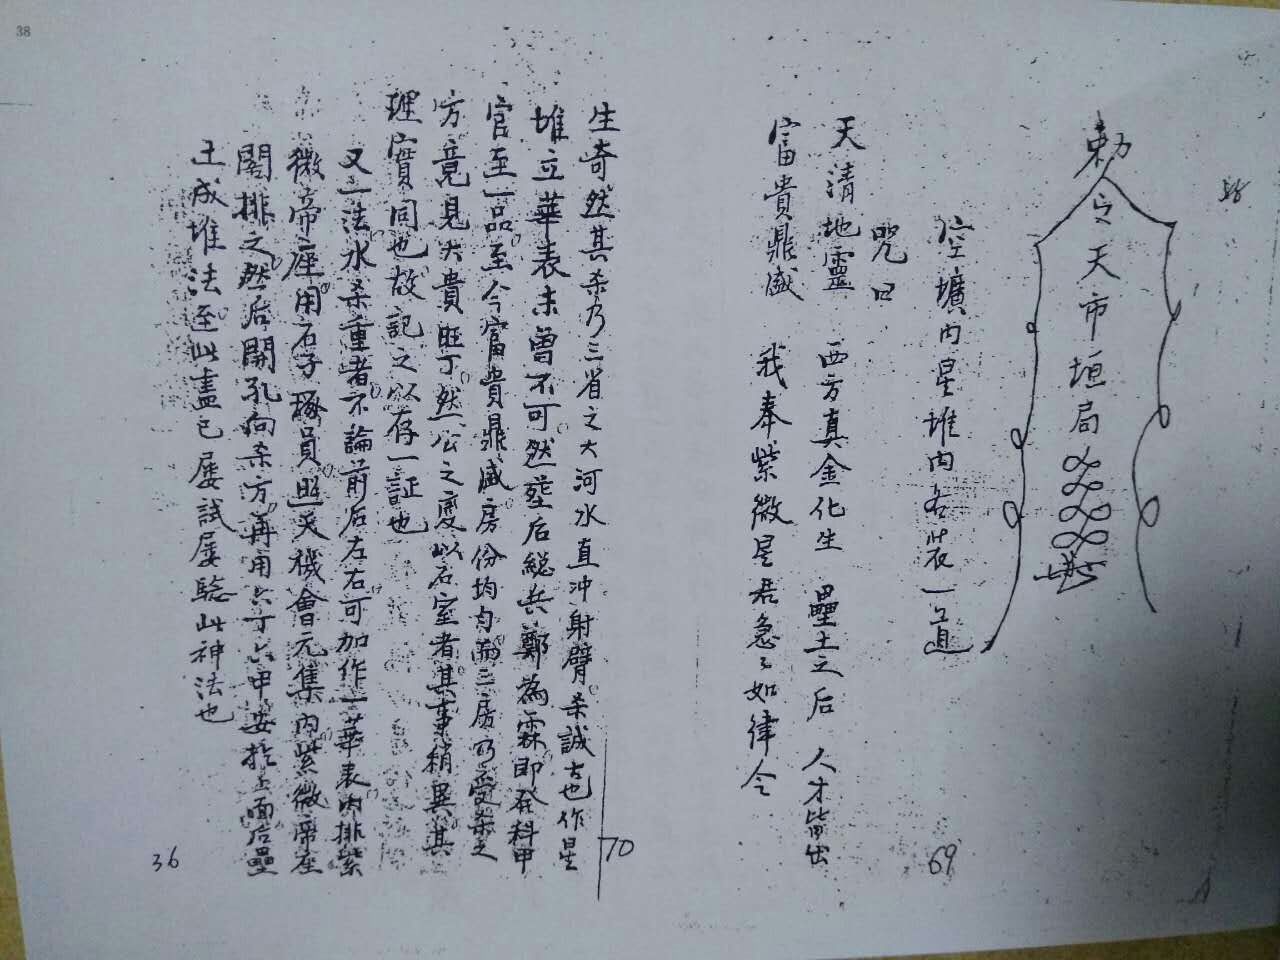 38
勅令天市垣局
38
空壙內星堆內各裝一道
咒曰
天清地靈 西方真金化生 壘土之后 人才皆出
富貴鼎盛 我奉紫微星君急々如律令
69
70
生奇然其杀乃三省之大河水直冲射臂杀誠古也作星
堆立華表未曾不可然塟后総兵鄭為霖即登科甲
官至一品至今富貴鼎盛房份均匀而三房乃受杀之
方竟見大貴旺丁然公之度以石室者其事稍異其
理實同也故記之以存一証也
又一法水杀重者不論前后左右可加作一華表內排紫
微帝座用石子極員照天機會元集內紫微帝座
閣排之然后開孔向杀方再用六丁六甲安於上面后壘
土成堆法至此盡已屡試屡驗此神法也
36